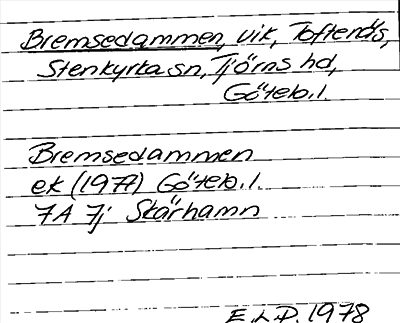 Bremsedammen, vik, Toftenäs,
Stenkyrka sn, Tjörns hd,
Göteb. l.
Bremsedammen
ek (1977) Göteb. l.
7A 7j Skärhamn
E.L.P. 1978